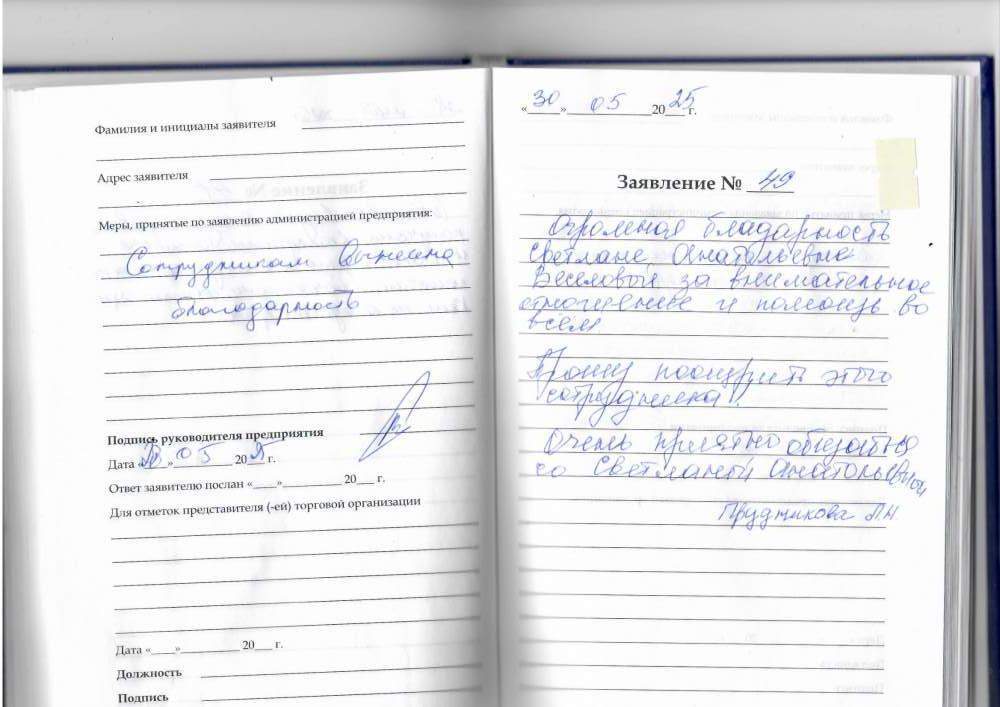 Фамилия и инициалы заявителя
Адрес заявителя
Меры, принятые по заявлению администрацией предприятия:
Сотрудникам вынесена
благодарность
Подпись руководителя предприятия
Дата «» 05 20 г.
Ответ заявителю послан «____»__________ 20___ г.
Для отметок представителя (-ей) торговой организации
Дата «____»__________ 20___ г.
Должность
Подпись
«30» 05 2025 г.
Заявление № 49
Огромная благодарность
Светлане Анатольевне
Веселовый за внимательное
отношение и помощь во
всём
Прошу поощрить этого
сотрудника!
Очень приятно общаться
со Светланой Анатольевной
Прудникова ЛН